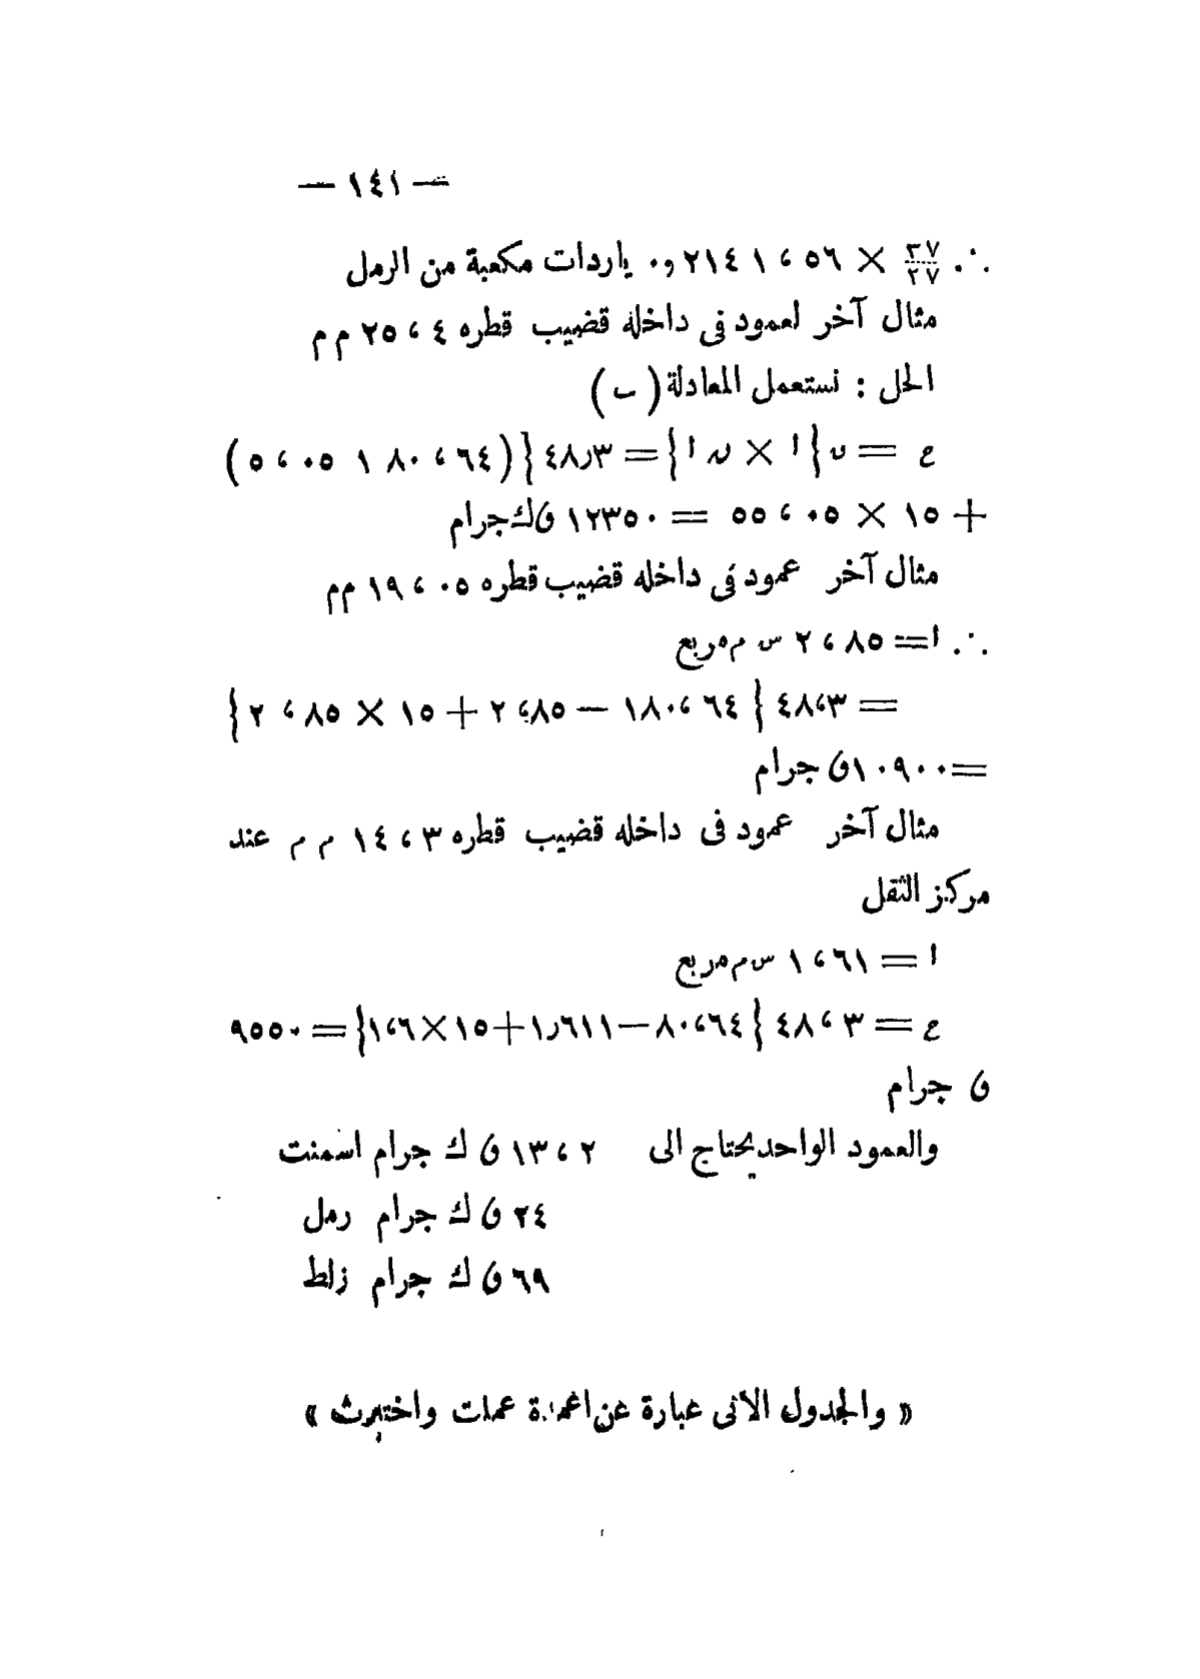 — ١٤١ —
∴ ٣٧/٢٧ × ٥٦ ، ٢١٤١ و٠ ياردات مكعبة من الرمل
مثال آخر لعمود فى داخله قضيب قطره ٤ ، ٢٥ م م
الحل : نستعمل المعادلة ( ب )
ع = ں { ا × ں ا } = ٤٨٫٣ { ( ٦٤ ، ٨٠ ١ ٠٥ ، ٥ )
+ ١٥ × ٠٥ ، ٥٥ = ١٢٣٥٠ ق ك جرام
مثال آخر عمود فى داخله قضيب قطره ٠٥ ، ١٩ م م
∴ ا = ٨٥ ، ٢ س م مربع
= ٤٨،٣ { ٦٤ ،١٨٠ — ٢،٨٥ + ١٥ × ٨٥ ، ٢ }
= ١٠٩٠٠ ق جرام
مثال آخر عمود فى داخله قضيب قطره ٣ ، ١٤ م م عند
مركز الثقل
ا = ٦١ ، ١ س م مربع
ع = ٣ ، ٤٨ { ٨٠،٦٤ — ١٫٦١١ + ١٥ × ١،٦ } = ٩٥٥٠
ق جرام
والعمود الواحد يحتاج الى ٢ ، ١٣ ق ك جرام اسمنت
٢٤ ق ك جرام رمل
٦٩ ق ك جرام زلط
« والجدول الاتى عبارة عن اعمدة عملت واختبرت »